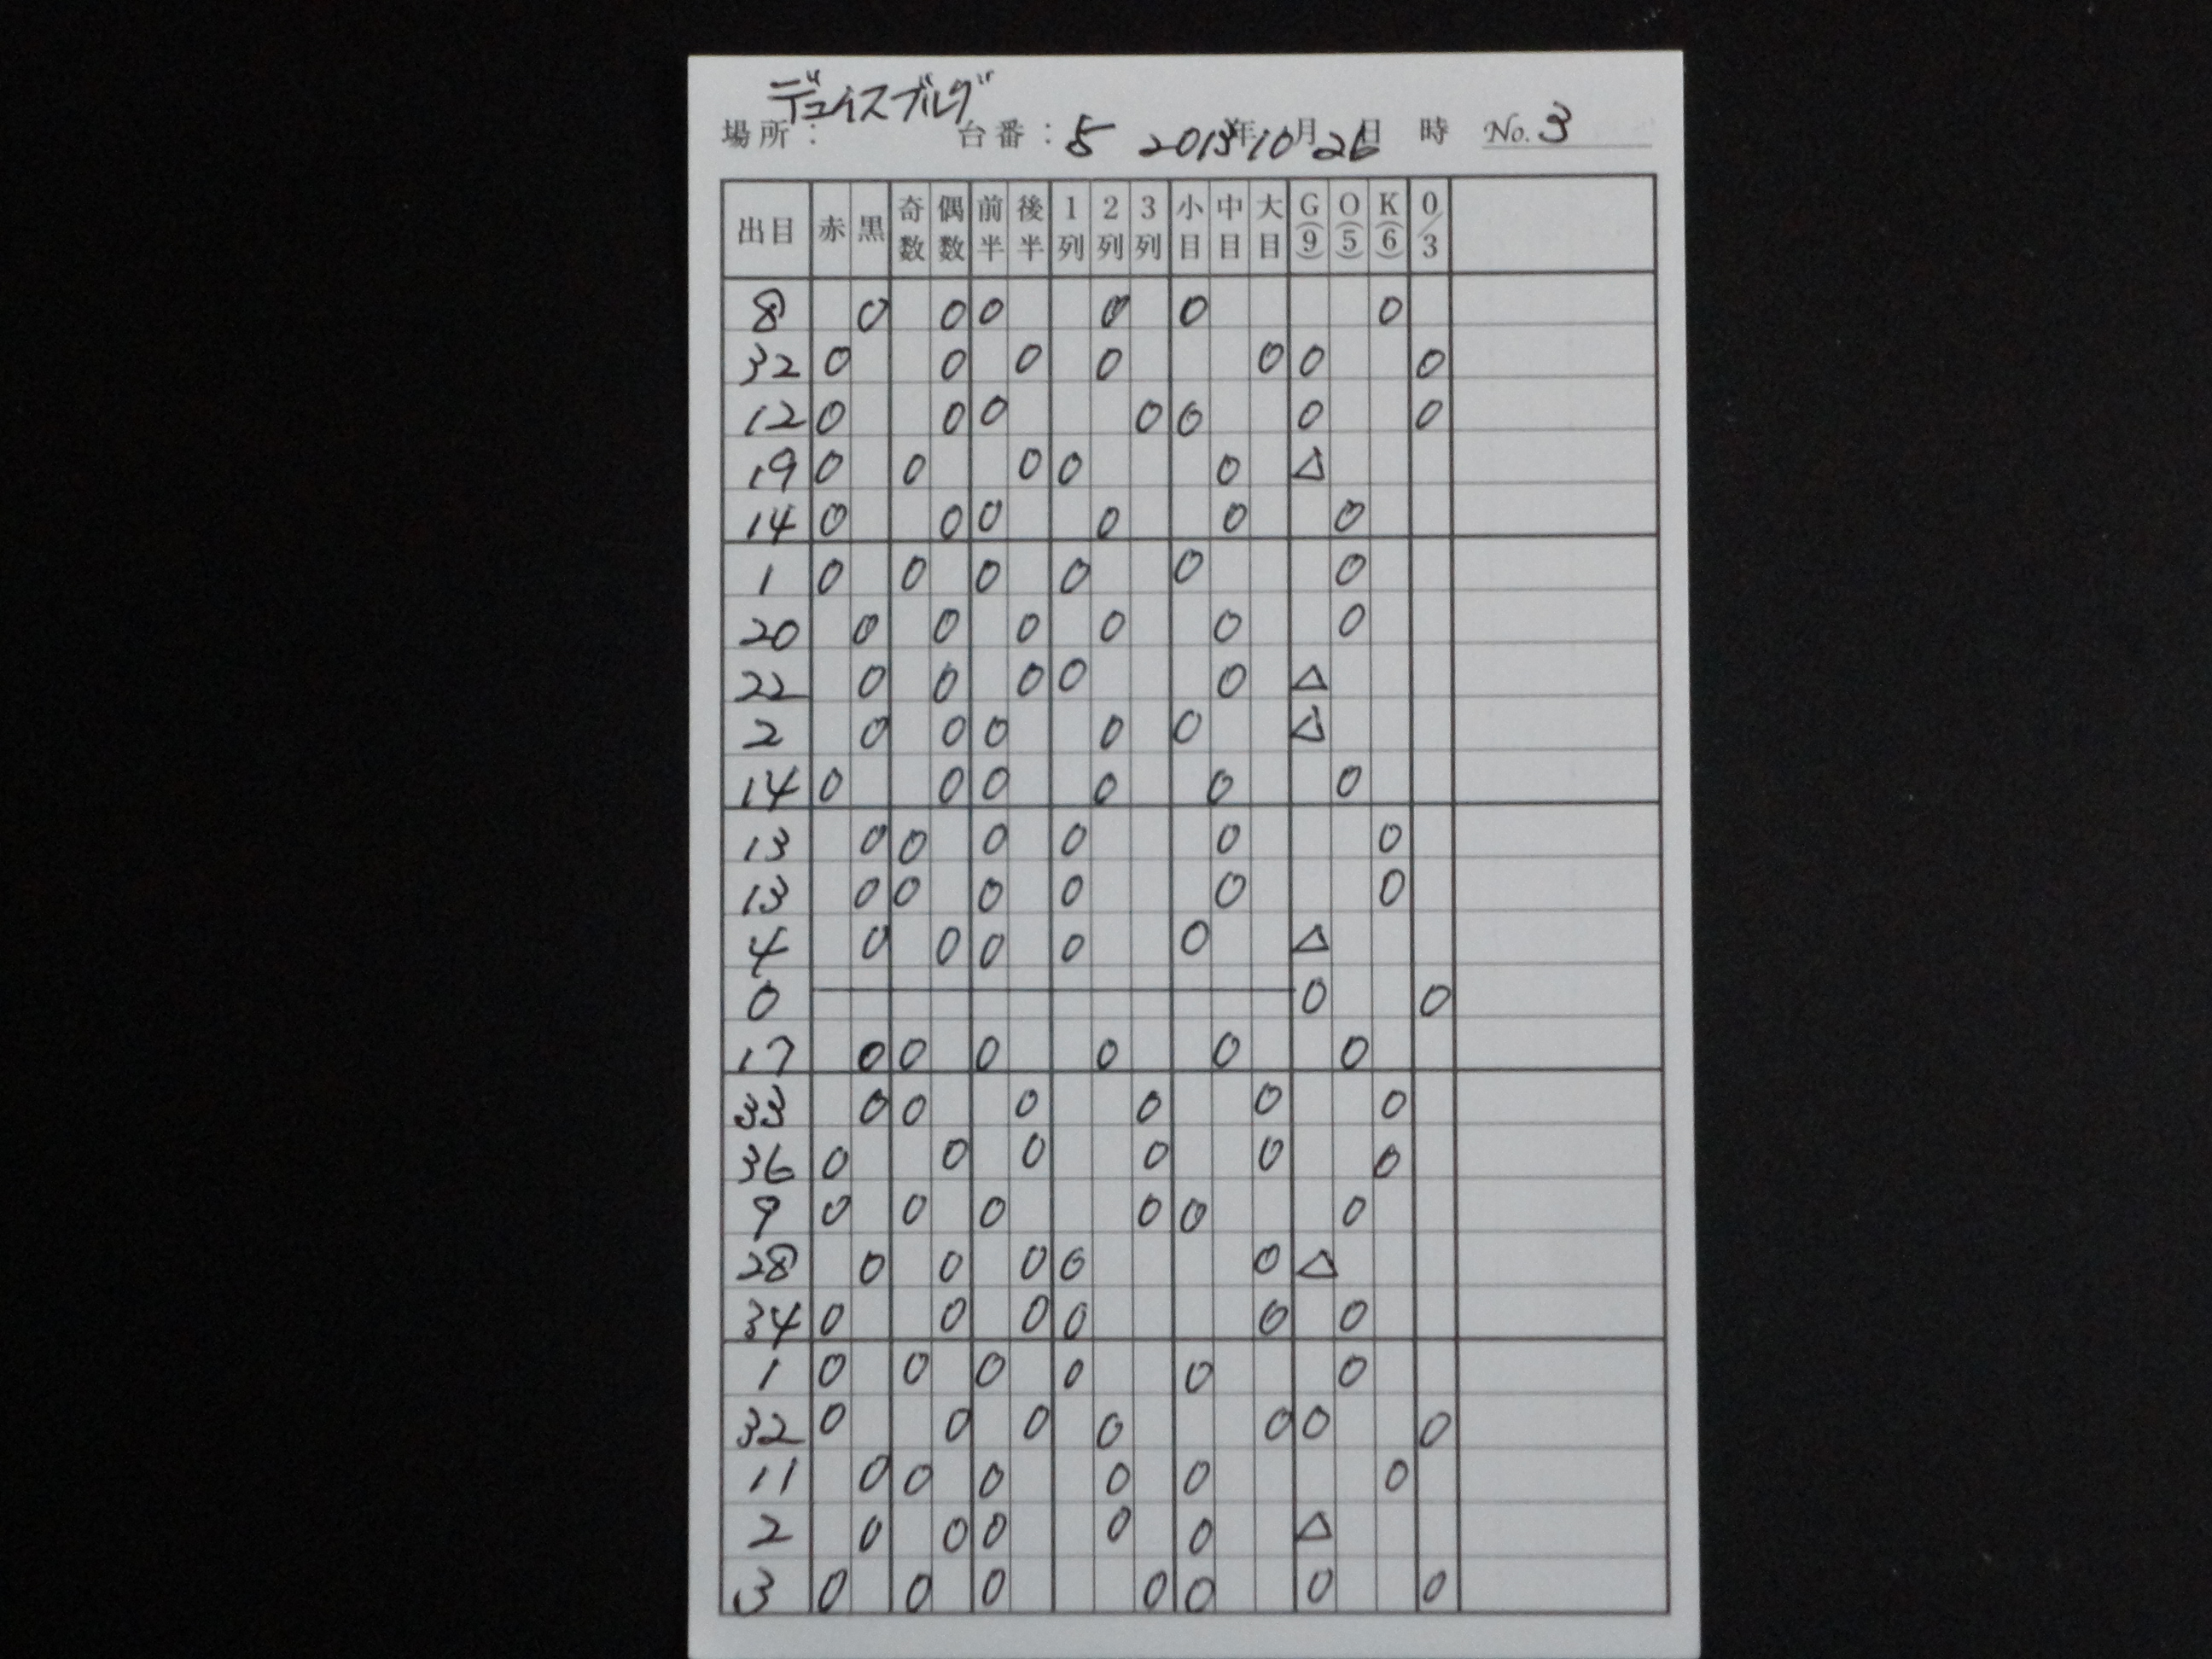 デュイスブルグ
場所： 台番：5 2013年10月26日 時 No. 3
出目 赤 黒 奇数 偶数 前半 後半 1列 2列 3列 小目 中目 大目 G(9) O(5) K(6) 0/3
8 0 0 0 0 0 0
32 0 0 0 0 0 0 0
12 0 0 0 0 0 0 0
19 0 0 0 0 0 △
14 0 0 0 0 0 0
1 0 0 0 0 0 0
20 0 0 0 0 0 0
22 0 0 0 0 0 △
2 0 0 0 0 0 △
14 0 0 0 0 0 0
13 0 0 0 0 0 0
13 0 0 0 0 0 0
4 0 0 0 0 0 △
0 0 0
17 0 0 0 0 0 0
33 0 0 0 0 0 0
36 0 0 0 0 0 0
9 0 0 0 0 0 0
28 0 0 0 0 0 △
34 0 0 0 0 0 0
1 0 0 0 0 0 0
32 0 0 0 0 0 0 0
11 0 0 0 0 0 0
2 0 0 0 0 0 △
3 0 0 0 0 0 0 0